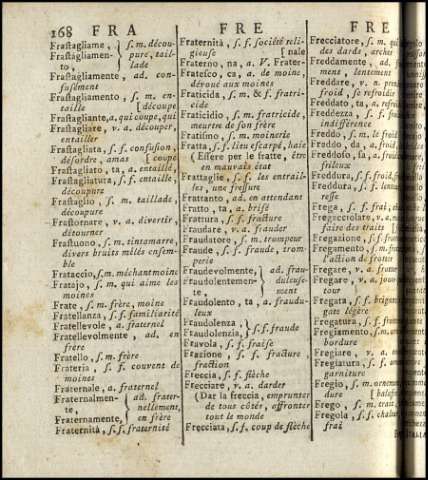 168 FRA FRE FRE
Frastagliame, } s. m. décou-
Frastagliamen- pure, tail-
to, lade
Frastagliamente, ad. con-
fusément
Frastagliamento, s. m. en-
taille [découpe
Frastagliante, a. qui coupe, qui
Frastagliare, v. a. découper,
entailler
Frastagliata, s. f. confusion,
désordre, amas [coupé
Frastagliato, ta, a. entaillé
Frastagliatura, s. f. entaille
découpure
Frastaglio, s. m. taillade,
découpure
Frastornare, v. a. divertir,
détourner
Frastuono, s. m. tintamarre,
divers bruits mêlés ensem-
ble
Frataccio, s. m. méchant moine
Fratajo, s. m. qui aime les
moines
Frate, s. m. frère, moine
Fratellanza, s. f. familiarité
Fratellevole, a. fraternel
Fratellevolmente, ad. en
frère
Fratello, s. m. frère
Frateria, s. f. couvent de
moines
Fraternale, a. fraternel
Fraternalmen- } ad. frater-
te, nellement,
Fraternamente, en frère
Fraternità, s. f. fraternité
Fraternità, s. f. société reli-
gieuse [nale
Fraterno, na, a. V. Frater-
Fratesco, ca, a. de moine,
dévoué aux moines
Fraticida, s. m. & f. fratri-
cide
Fraticidio, s. m. fratricide,
meurtre de son frère
Fratismo, s. m. moinerie
Fratta, s. f. lieu escarpé, haie
(Essere per le fratte, être
en mauvais état
Frattaglie, s. f. les entrail-
les, une fressure
Frattanto, ad. en attendant
Fratto, ta, a. brisé
Frattura, s. f. fracture
Fraudare, v. a. frauder
Fraudatore, s. m. trompeur
Fraude, s. f. fraude, trom-
perie
Fraudevolmente, } ad. frau-
Fraudolentemen- duleuse-
te, ment
Fraudolento, ta, a. fraudu-
leux
Fraudolenza, } s. f. fraude
Fraudolenzia,
Fravola, s. f. fraise
Frazione, s. f. fracture,
fraction
Freccia, s. f. flèche
Frecciare, v. a. darder
(Dar la freccia, emprunter
de tous côtés, affronter
tout le monde
Frecciata, s. f. coup de flèche
Frecciatore, s. m. qui
des dards, archer
Freddamente, ad.
ment, lentement
Freddare, v. n.
froid, se refroidir
Freddato, ta, a. refroidi
Freddezza, s. f.
indifférence
Freddo, s. m. le froid
Freddo, da, a. froid,
Freddoso, sa, a.
frileux
Freddura, s. f. froid,
Freddura, s. f. lenteur,
resse
Frega, s. f. frai,
Fregacciolare, v. a.
faire des traits
Fregagione, s. f.
Fregamento, s. m.
l'action de frotter
Fregare, v. a. frotter,
Fregare, v. a. jouer
tour
Fregata, s. f. brigantin,
gate légère
Fregatura, s. f.
Fregiamento, s. m.
bordure
Fregiare, v. a.
Fregiatura, s. f.
garniture
Fregio, s. m. ornement,
dure
Frego, s. m. trait,
Fregola, s. f. chaleur,
frai